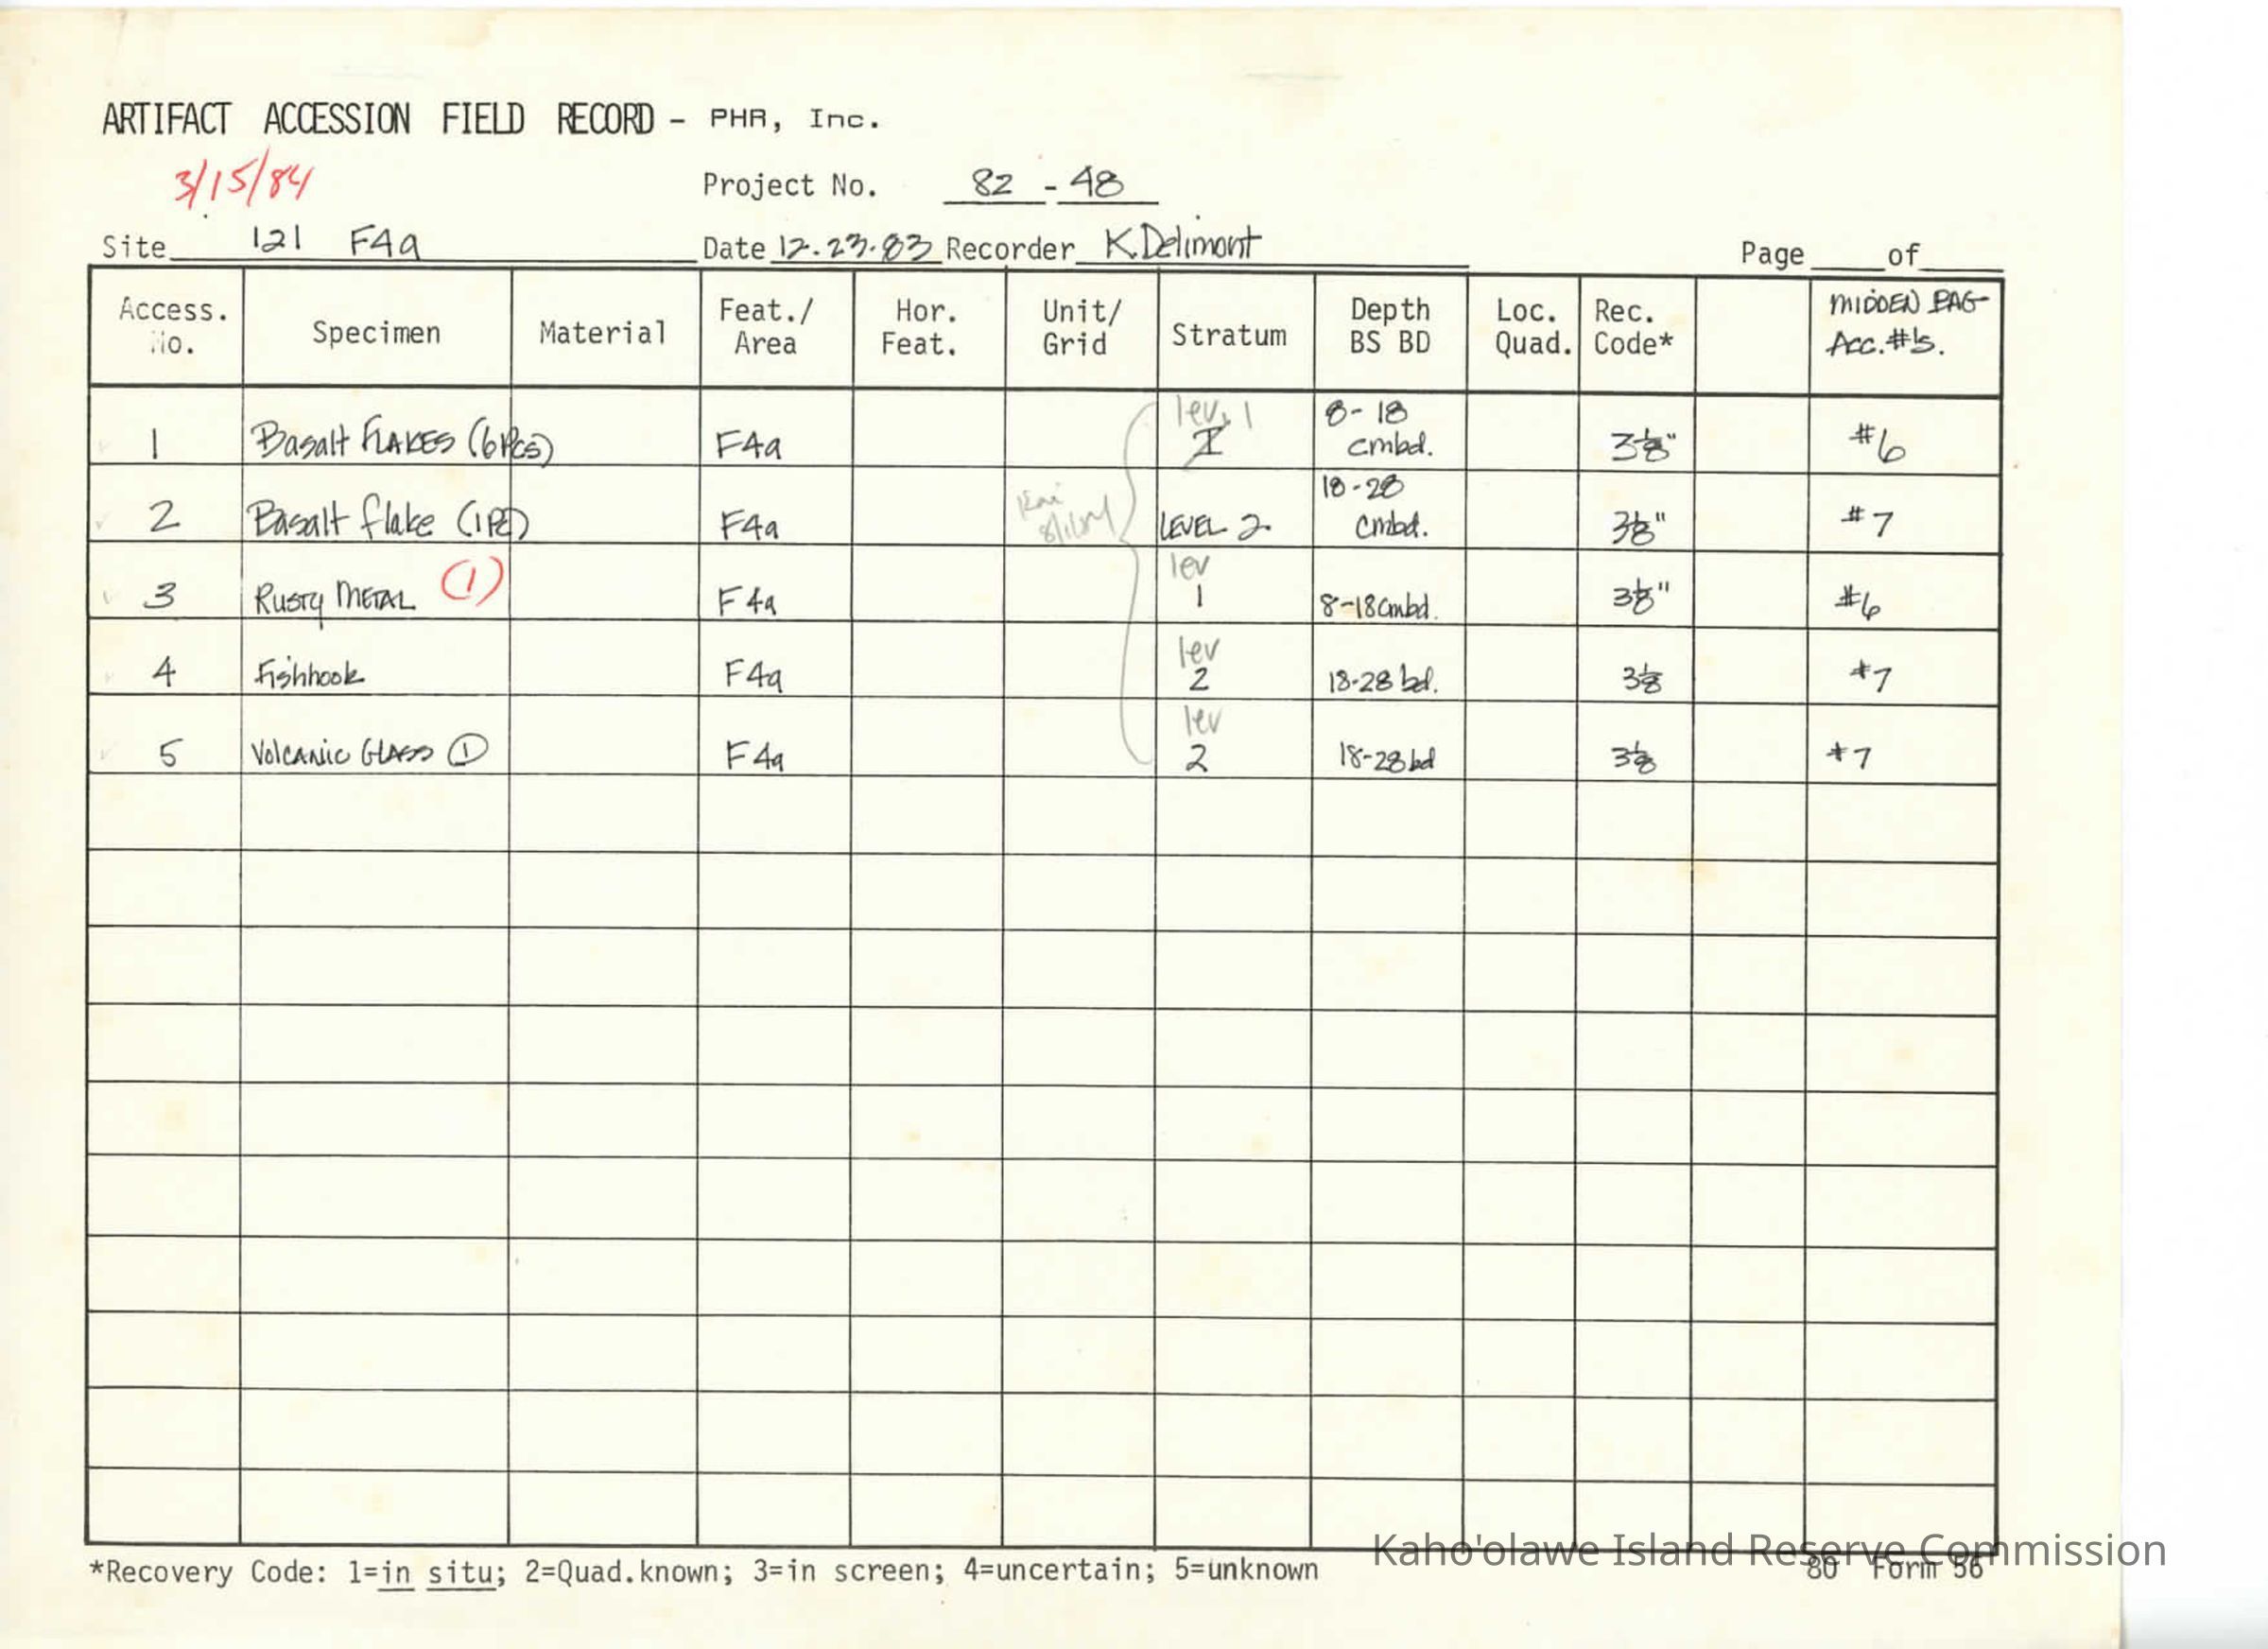 ARTIFACT ACCESSION FIELD RECORD - PHRI, Inc.
3/15/84
Project No. 82 - 48
Site 121 F4a Date 12.23.83 Recorder K.Delimont Page of
Access. No. Specimen Material Feat./ Area Hor. Feat. Unit/ Grid Stratum Depth BS BD Loc. Quad. Rec. Code* MIDDEN BAG Acc.#'s.
1 Basalt FLAKES (6Pcs) F4a lev. 1 I 8-18 cmbd. 3 1/8" #6
2 Basalt flake (1PC) F4a LEVEL 2. 18-28 cmbd. 3 1/8" #7
3 Rusty METAL (1) F4a lev 1 8-18cmbd. 3 1/8" #6
4 Fishhook F4a lev 2 18-28 bd. 3 1/8 #7
5 Volcanic GLASS 1 F4a lev 2 18-28bd 3 1/8 #7
*Recovery Code: 1=in situ; 2=Quad.known; 3=in screen; 4=uncertain; 5=unknown 80 Form 56
Kaho'olawe Island Reserve Commission